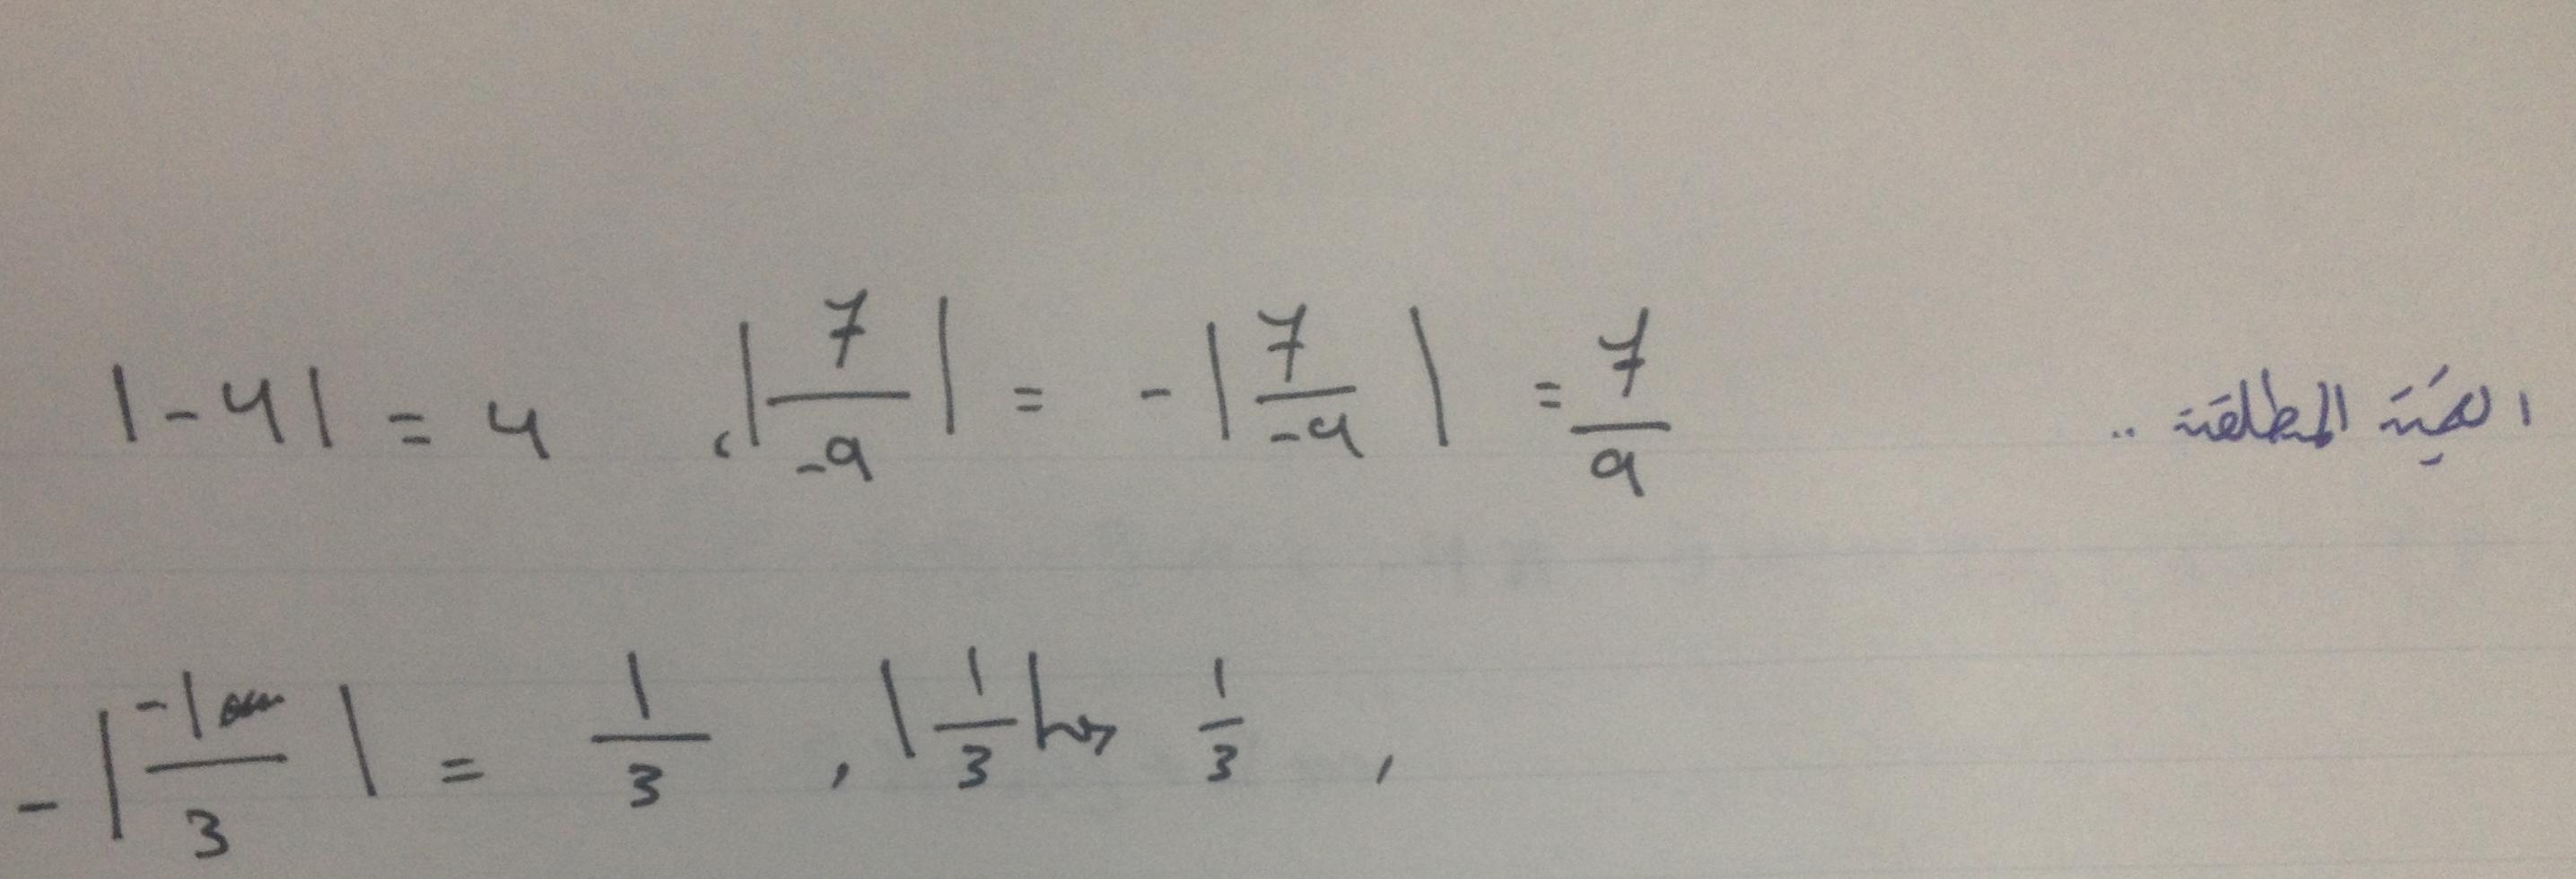 القيمة المطلقة ..
|-4| = 4 ، |7/-9| = -|7/-9| = 7/9
-|-1/3| = 1/3 , |1/3| → 1/3 ,